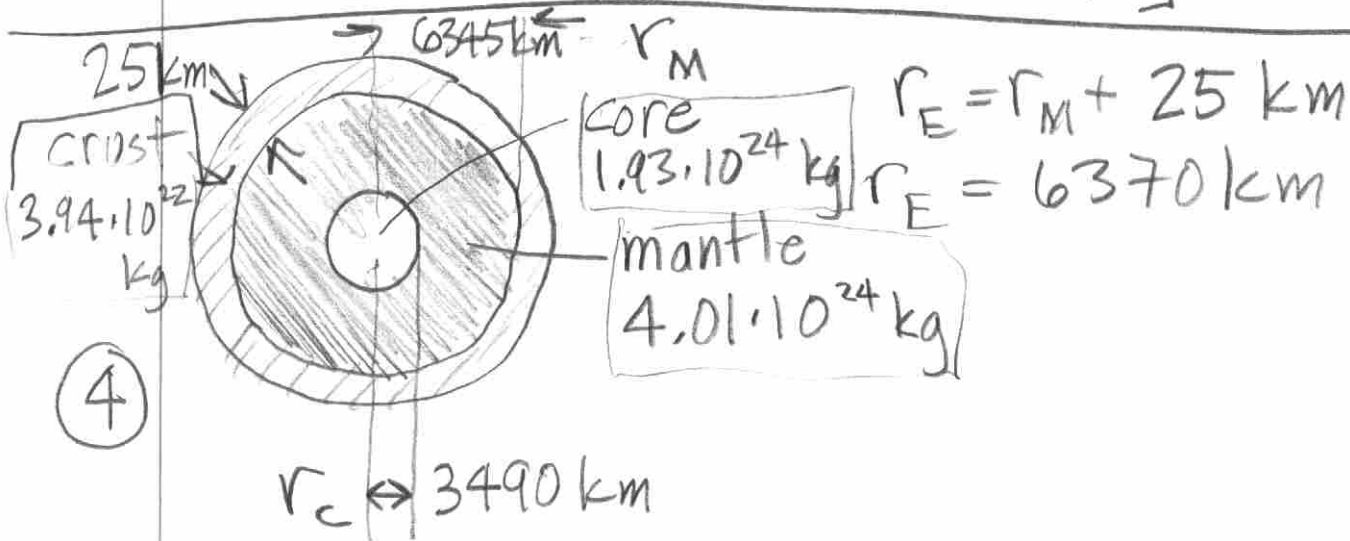 6345 km r_M
25 km
r_E = r_M + 25 km
r_E = 6370 km
crust
3.94·10²² kg
core
1.93·10²⁴ kg
mantle
4.01·10²⁴ kg
④
r_c ↔ 3490 km